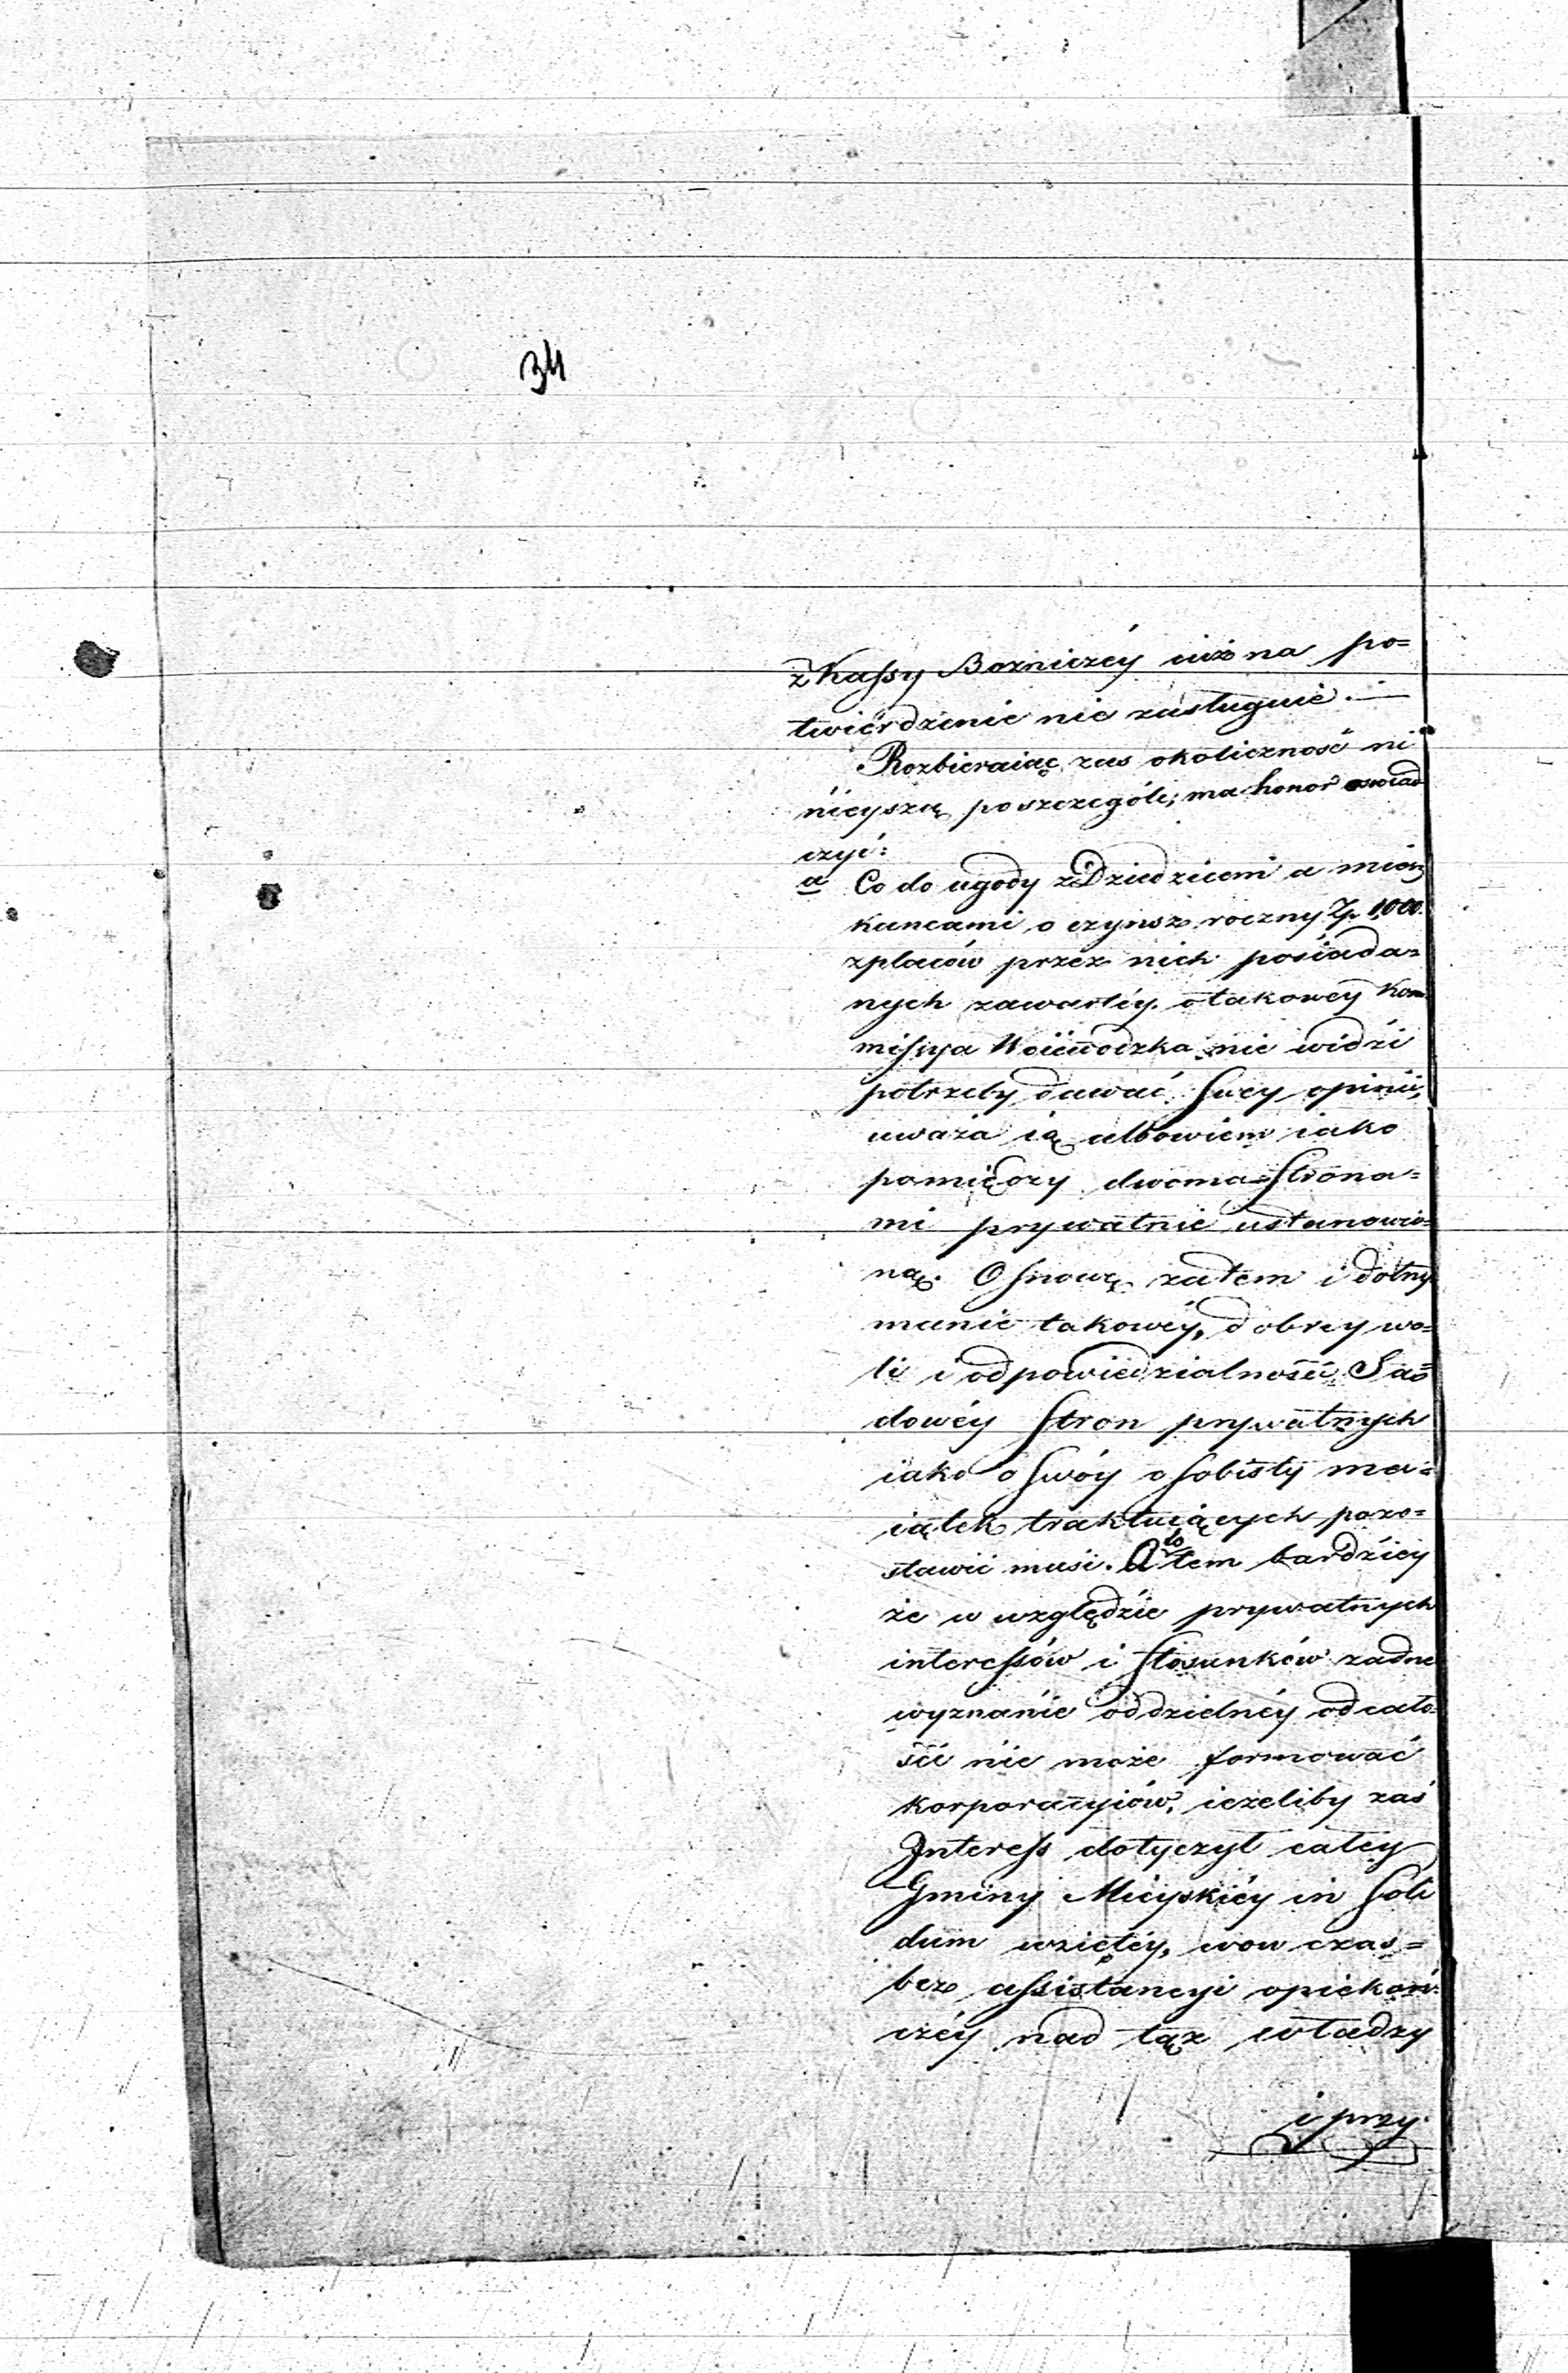 34
z Kassy Bozniczéy iuż na po=
twiérdzenie nie zasługuie. —
Rozbieraiąc zas okoliczność ni
nieyszą poszczególe; ma honor oswiad
czyć:
a Co do ugody z Dziedzicem a miesz
kancami o czynsz roczny Zp. 1,000.
z placów przez nich posiada=
nych zawartéy. o takowey Kom
missya Woiewodzka nie widzi
potrzeby dawać swey opinii,
uważa ią albowiem iako
pomiędzy dwoma Strona=
mi prywatnie ustanowio=
ną. Osnowę zatem i dotrzy
manie takowéy, dobrey wo=
li i odpowiedzialności Są=
dowéy Stron prywatnych
iako o swóy osobisty ma=
iątek traktuiących pozo=
stawić musi. A to tem bardziey
że w względzie prywatnych
interessów i Stosunków zadne
wyznanie oddzielnéy od cało=
ści nie może formować
korporacyiów, ieżeliby zaś
Interess dotyczył całey
Gminy Mieyskiéy in Soli
dum wziętéy, wow czas=
bez assistancyi opiekań
czéy nad tąż władzy
i przy.